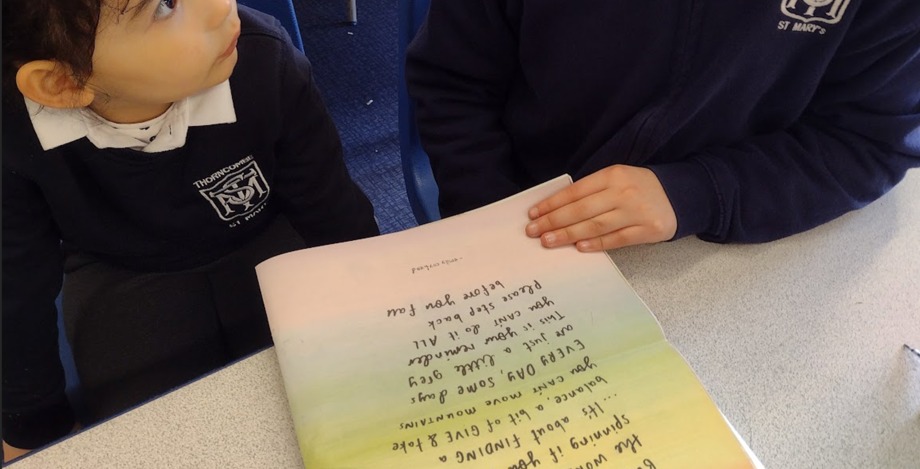 ST MARY'S
ST MARY'S
the
spinning if you
...It's about FINDING a
balance, a bit of GIVE & take
you can't move mountains
EVERY DAY, some days
are just a little grey
This is your reminder
you can't do it ALL
Please step back
before you fall